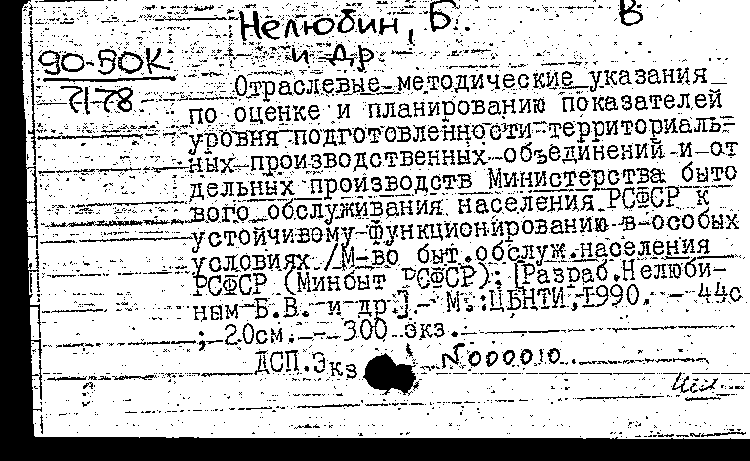 Нелюбин, Б. В
и др.
90-ВОК
71-78
Отраслевые методические указания
по оценке и планированию показателей
уровня подготовленности территориаль-
ных производственных объединений и от
дельных производств Министерства быто
вого обслуживания населения РСФСР к
устойчивому функционированию в особых
условиях /М-во быт.обслуж.населения
РСФСР (Минбыт РСФСР); [Разраб.Нелюби-
ным Б.В. и др.].- М.:ЦБНТИ,1990. - 44с
; 20см. - 300 экз.
ДСП.Экз N000010.